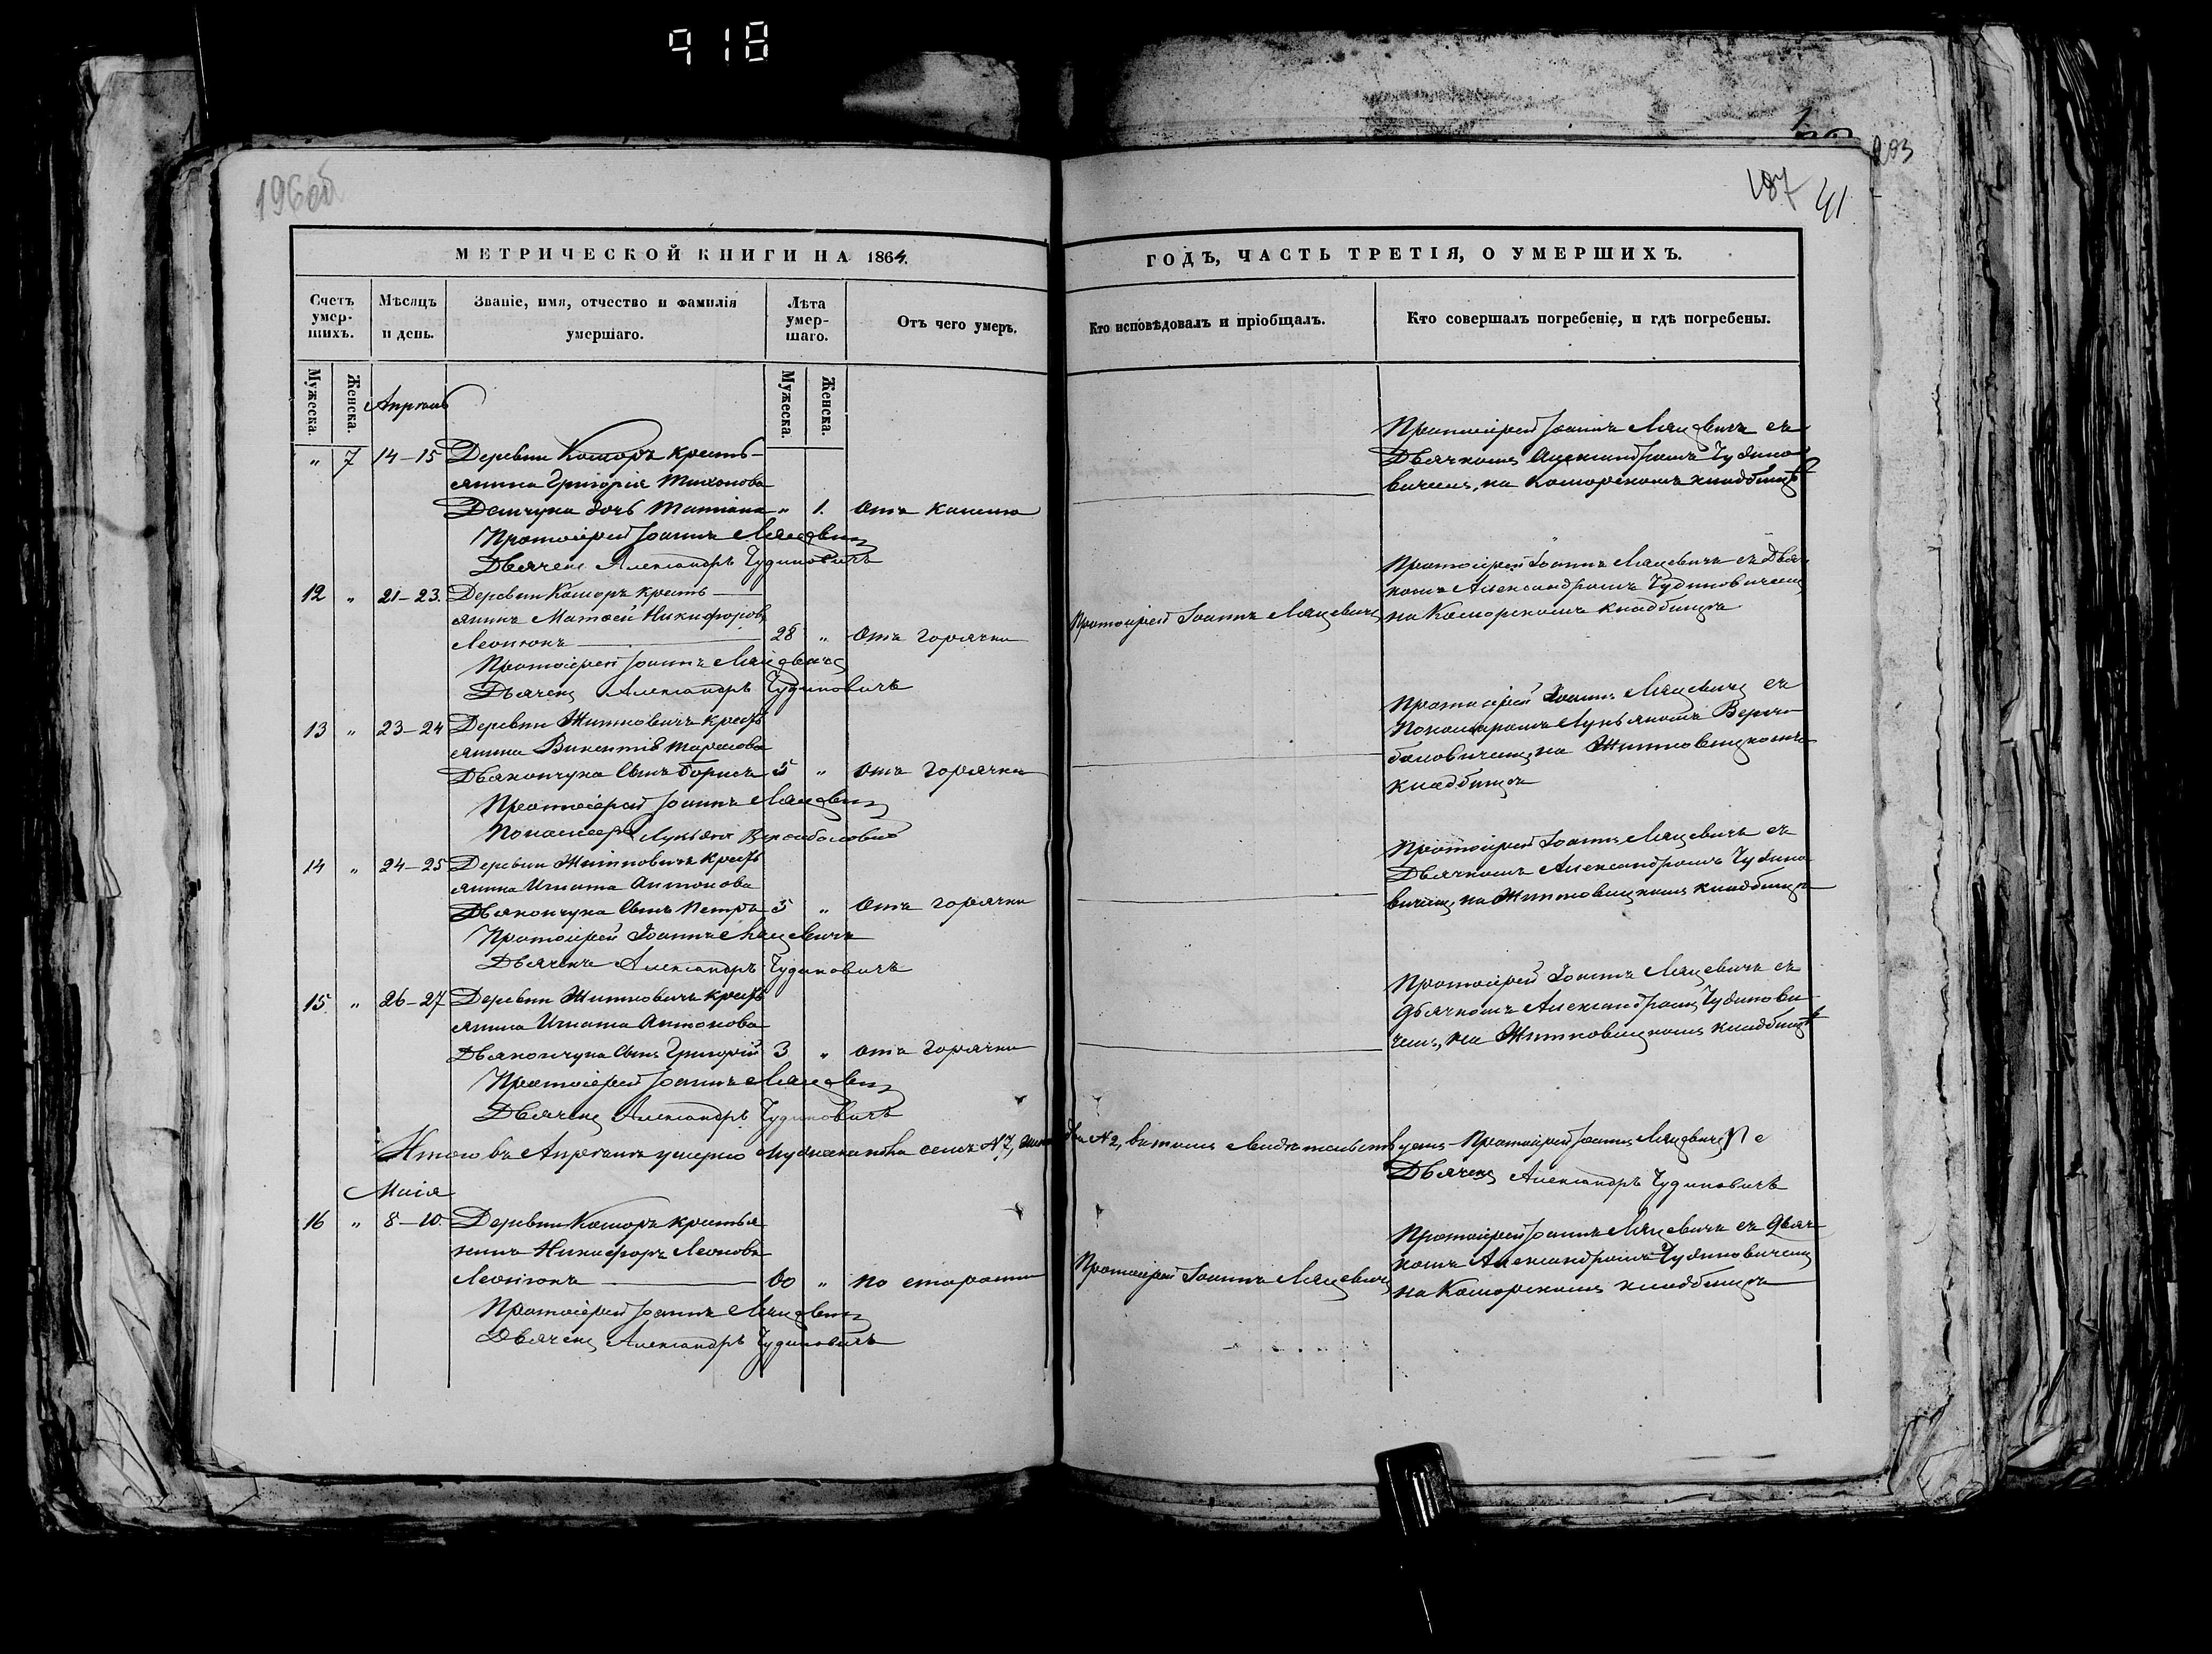 918
196об
187 41
203
МЕТРИЧЕСКОЙ КНИГИ НА 1864.
ГОДЪ, ЧАСТЬ ТРЕТІЯ, О УМЕРШИХЪ.
Счетъ умер-шихъ.
Мѣсяцъ и день.
Званіе, имя, отчество и фамилія умершаго.
Лѣта умер-шаго.
Отъ чего умеръ.
Кто исповѣдовалъ и пріобщалъ.
Кто совершалъ погребеніе, и гдѣ погребены.
Мужеска.
Женска.
Мужеска.
Женска.
Апрѣль
" 7 14-15 Деревни Коморъ кресть-
янина Григорія Тихонова
Демчука дочь Татіана " 1. Отъ кашлю
Протоіерей Іоаннъ Мацевичъ
Дьячекъ Александръ Чудиновичъ
Протоіерей Іоаннъ Мацевичъ съ
Дьячкомъ Александромъ Чудино-
вичемъ, на Коморскомъ кладбищѣ
12 " 21-23. Деревни Коморъ кресть-
янинъ Матѳей Никифоровъ
Леонюкъ 28 " Отъ горячки
Протоіерей Іоаннъ Мацевичъ
Дьячекъ Александръ Чудиновичъ
Протоіерей Іоаннъ Мацевичъ
Протоіерей Іоаннъ Мацевичъ съ Дьяч-
комъ Александромъ Чудиновичемъ
на Коморскомъ кладбищѣ
13 " 23-24 Деревни Житковичъ кресть
янина Викентія Тарасова
Дьякончука сынъ Борисъ 5 " отъ горячки
Протоіерей Іоаннъ Мацевичъ
Пономарь Лукьянъ
Протоіерей Іоаннъ Мацевичъ съ
Пономаремъ Лукьяномъ
на Житковицкомъ
кладбищѣ
14 " 24-25 Деревни Житковичъ кресть
янина Игната Антонова
Дьякончука сынъ Петръ 5 " Отъ горячки
Протоіерей Іоаннъ Мацевичъ
Дьячекъ Александръ Чудиновичъ
Протоіерей Іоаннъ Мацевичъ съ
Дьячкомъ Александромъ Чудино
вичемъ, на Житковицкомъ кладбищѣ
15 " 26-27 Деревни Житковичъ кресть
янина Игната Антонова
Дьякончука сынъ Григорій 3 " отъ горячки
Протоіерей Іоаннъ Мацевичъ
Дьячекъ Александръ Чудиновичъ
Протоіерей Іоаннъ Мацевичъ съ
дьячкомъ Александромъ Чудинови-
чемъ, на Житковицкомъ кладбищѣ
Итого въ Апрѣлѣ умерло Мужеска пола семь N 7, два N 2, въ томъ свидѣтельствуемъ - Протоіерей Іоаннъ Мацевичъ
Дьячекъ Александръ Чудиновичъ
Маія
16 " 8-10. Деревни Коморъ крестья
нинъ Никифоръ Леонова
Леонюкъ 60 " по старости
Протоіерей Іоаннъ Мацевичъ
Дьячекъ Александръ Чудиновичъ
Протоіерей Іоаннъ Мацевичъ
Протоіерей Іоаннъ Мацевичъ съ дьяч-
комъ Александромъ Чудиновичемъ
на Коморскомъ кладбищѣ